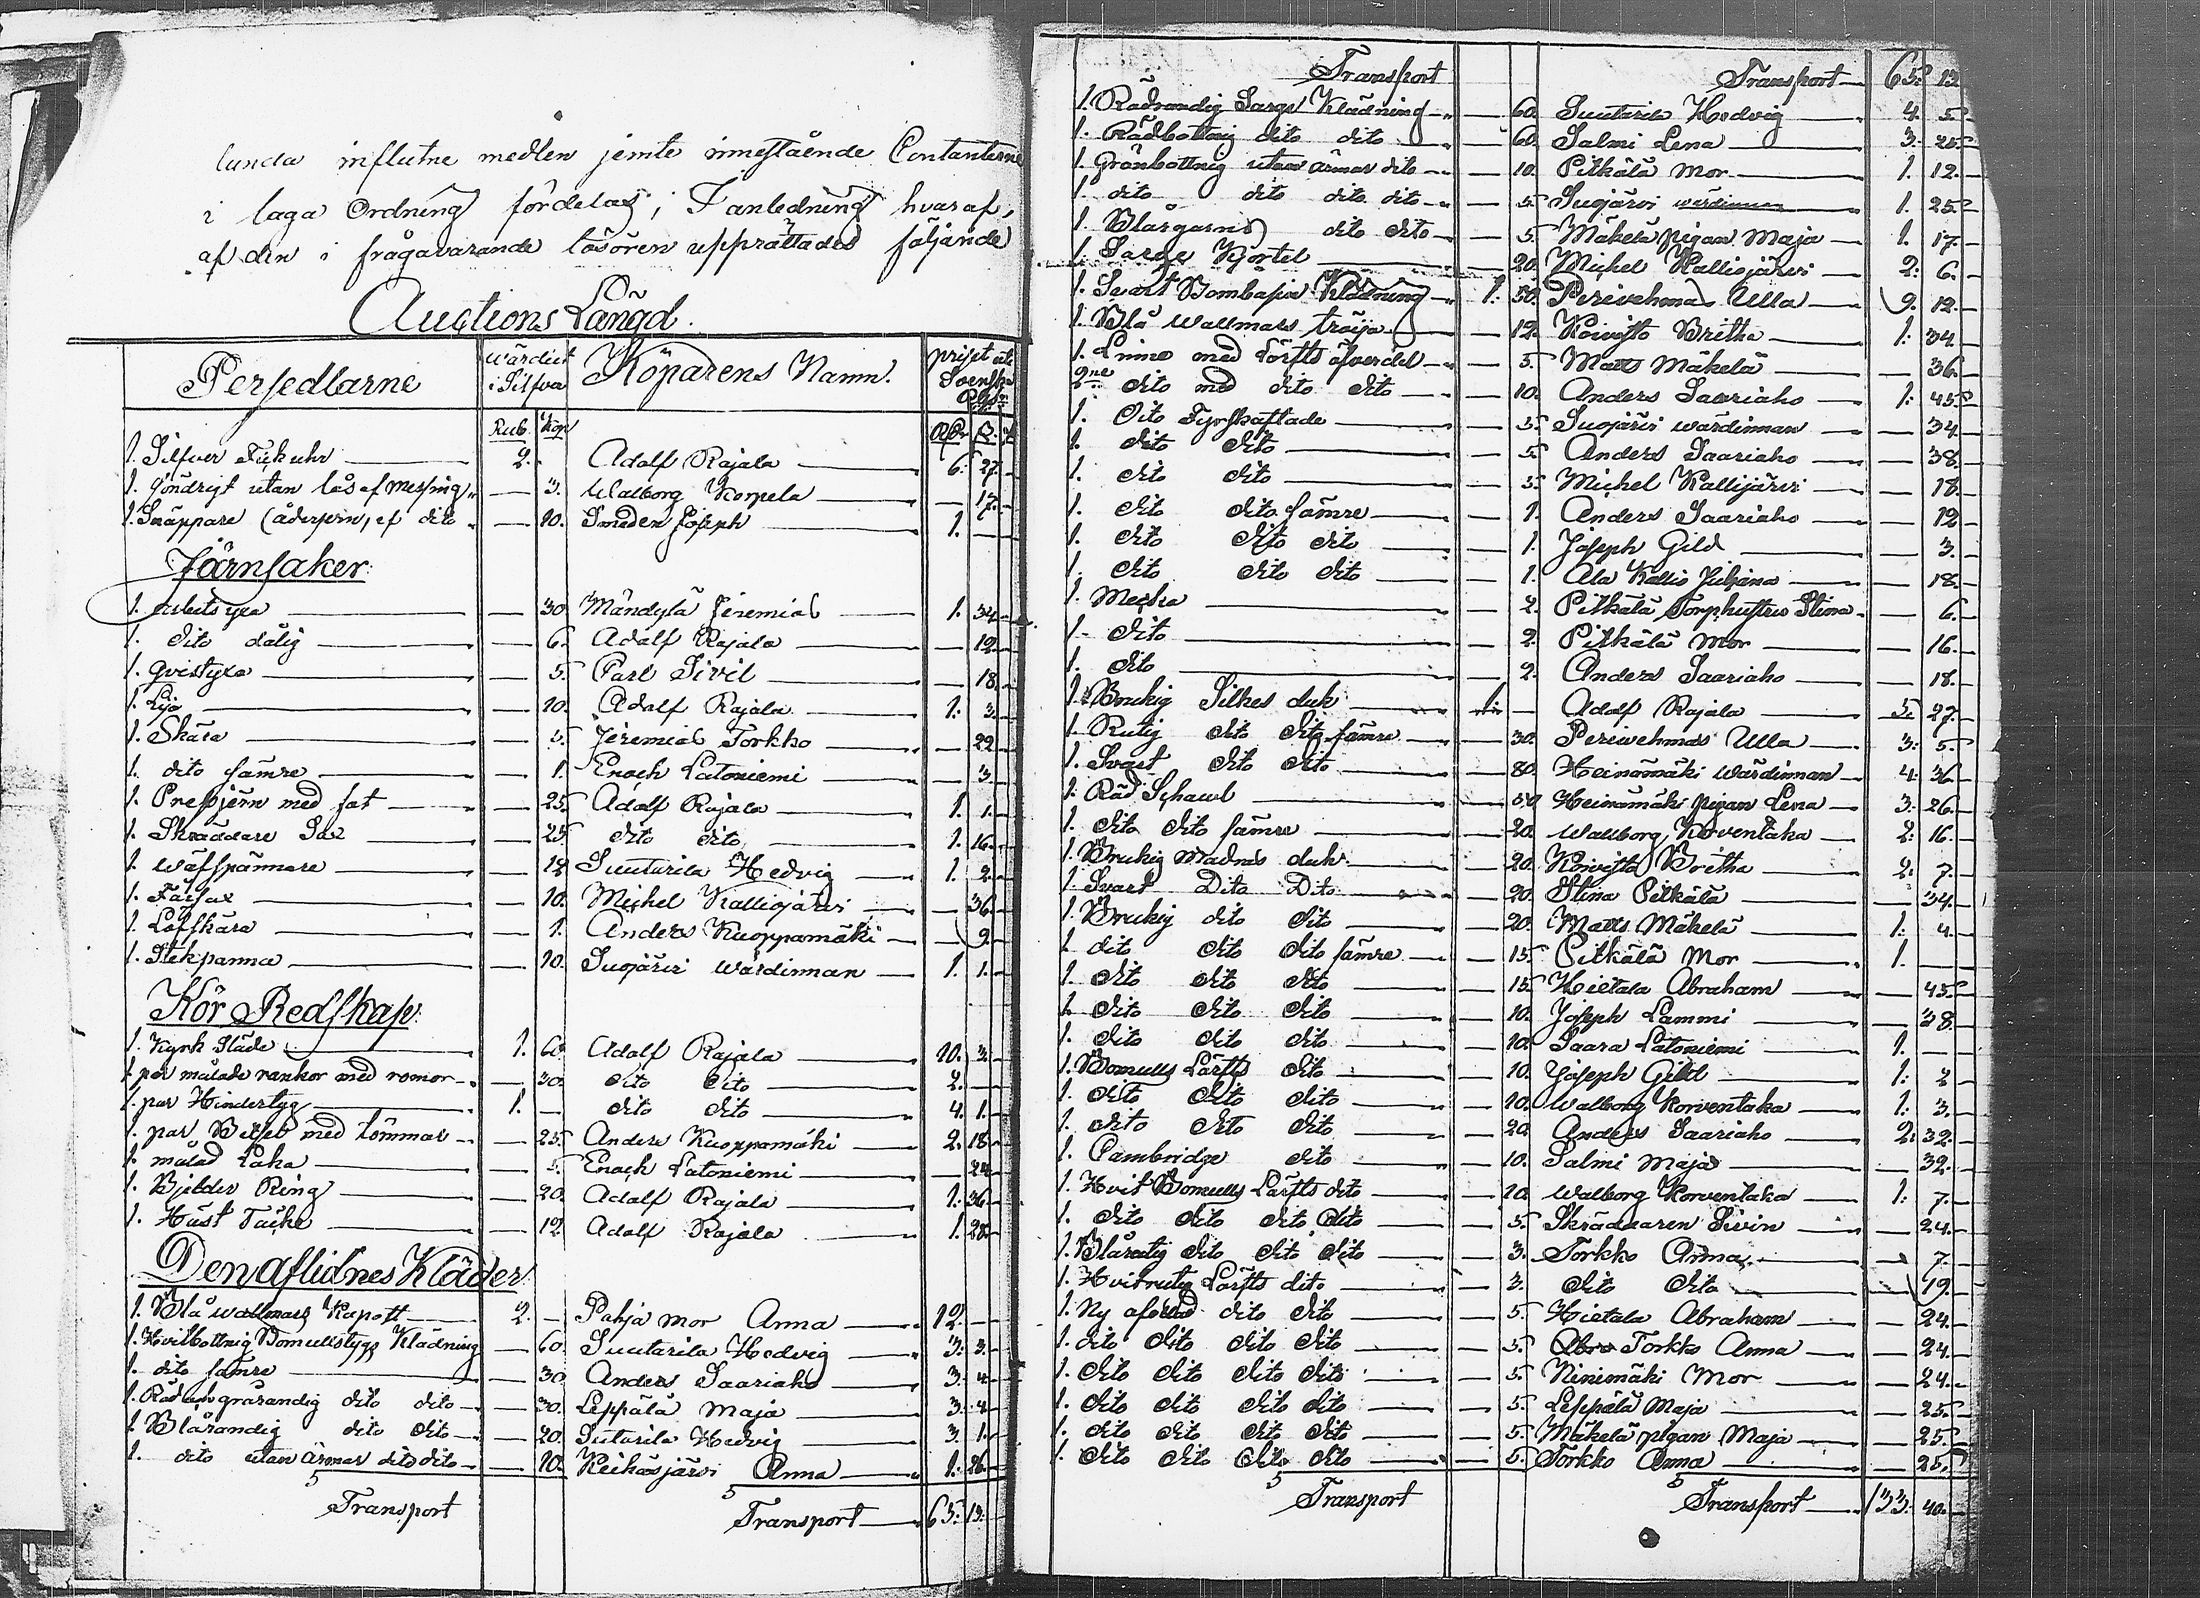 lunda influtne medlen jemte innestående Contanterne
i laga Ordning fördelas; I anledning hvaraf,
af den i frågavarande lösören upprättades följande
Auctions Längd.
Persedlarne Wärdiet i Silfver Köparens Namn. priset uti Svenska Rgs:
Rub. Kop. Rdr ß.
1. Silfver Fickuhr 2. Adolf Rajala 6. 27.
1. utan lås af Messing 3. Walborg Korpela 17.
1. Snäppare (åderjern, af dito 10. Smeden Joseph 1.
Järnsaker:
1. Arbetsyxa 30. Mändylä Jeremias 1. 34.
1. dito dålig 6. Adolf Rajala 12.
1. Qvistyxa 5. Carl Sivil 18.
1. Lija 10. Adolf Rajala 1. 3.
1. Skära 5. Jeremias Torkko 22.
1. dito sämre 1. Enoch Latoniemi 3.
1. Pressjern med fat 25. Adolf Rajala 1. 1.
1. Skräddare Sax 25. dito dito 1. 16.
1. Wäfspännare 12. Suutarila Hedvig 1. 2.
1. Fårsax 10. Michel Kalliojärvi 36.
1. Löfskära 1. Anders Kuoppamäki 9.
1. Stekpanna 10. Suojärvi Wärdinnan 1. 1.
Kör Redskap:
1. Kyrk Släde 1. 60. Adolf Rajala 10. 3.
1. par målade rankor med romor 30. dito dito 2.
1. par Hindertyg 1. dito dito 4. 1.
1. par Betsel med tömmar 25. Anders Kuoppamäki 2. 18.
1. målad Låka 5. Enoch Latoniemi 24.
1. Bjelder Ring 20. Adolf Rajala 1. 36.
1. Häst Täcke 12. Adolf Rajala 1. 28.
Den aflidnes Kläder
1. Blå wallmars Kapott 2. Pahja mor Anna 12.
1. Hvitbottnig Bomullstygs Klädning 60. Suutarila Hedvig 3. 3.
1. dito sämre 30. Anders Saariaho 3. 4.
1. Röd grårandig dito dito 30. Leppälä Maja 3. 4.
1. Blårandig dito dito 20. Sutarila Hedvig 3. 1.
1. dito utan ärmar dito dito 10. Keikäsjärvi Anna 1. 26.
Transport Transport 65. 13.
Transport Transport 65. 13.
1. Rödrandig Sarge Klädning 60. Suutarila Hedvig 4. 5.
1. Rödbottnig dito dito 60. Salmi Lena 3. 25.
1. Grönbottnig utan ärmar dito 10. Pitkälä Mor 1. 12.
1. dito dito dito dito 5. Suojärvi wärdinnan 1. 25.
1. Blårgarns dito dito 5. Mäkelä pigan Maja 1. 17.
1. Sarge Kjortel 20. Michel Kalliojärvi 2. 6.
1. Svart Bombasin Klädning 1. 50. Perivehmas Ulla 9. 12.
1. Blå Wallmars tröija 12. Koivisto Britha 1. 34.
1. Linne med Lärfts öfverdel 5. Matts Mäkelä 36.
2ne dito med dito dito 10. Anders Saariaho 1. 45.
1. Dito Fyrskaftade 5. Suojärvi wärdinnan 34.
1. dito dito 5. Anders Saariaho 38.
1. dito dito 5. Michel Kallijärvi 18.
1. dito dito sämre 1. Anders Saariaho 12
1. dito dito dito 1. Joseph Gild 3.
1. dito dito dito 1. Ala Kallio Juliana 18.
1. Meska 2. Pitkälä Torphustru Stina 6.
1. dito 2. Pitkälä Mor 16.
1. dito 2. Anders Saariaho 18.
1. Brukig Silkes duk 1. Adolf Rajala 5. 27.
1. Rutig dito dito sämre 30. Perivehmas Ulla 3. 5.
1. Svart dito dito 80. Heinämäki Wärdinnan 4. 36
1. Röd Schawl 50. Heinämäki pigan Lena 3. 26.
1. dito dito sämre 20. Wallborg Korventaka 2. 16.
1. Brukig Madras duk 20. Koivisto Britha 2. 7.
1. Svart Dito Dito 20. Stina Pitkälä 34.
1. Brukig dito dito 20. Matts Mäkelä 1. 4.
1. dito dito dito sämre 15. Pitkälä Mor 1.
1. dito dito dito 15. Hietala Abraham 45.
1. dito dito dito 10. Joseph Lammi 38.
1. dito dito dito 10. Saara Latoniemi 1.
1. Bomulls Lärfts dito 10. Joseph Gild 1. 2
1. dito dito dito 10. Walborg Korventaka 1. 3.
1. dito dito dito 20. Anders Saariaho 2. 32.
1. Cambridge dito 10. Salmi Maja 32.
1. Hvit Bomulls Lärfts dito 10. Walborg Korventaka 1. 7.
1. dito dito dito dito 5. Skräddaren Sivin 24.
1. Blårutig dito dito dito 3. Torkko Anna 7.
1. Hvitrutig Lärfts dito 3. dito dito 19.
1. Ny dito dito 5. Hietala Abraham 24.
1. dito dito dito dito 5. Torkko Anna 24.
1. dito dito dito dito 5. Ninimäki Mor 24.
1. dito dito dito dito 5. Leppälä Maja 25.
1. dito dito dito dito 5. Mäkelä pigan Maja 25.
1. dito dito dito dito 5. Torkko Anna 25.
Transport Transport 133. 40.